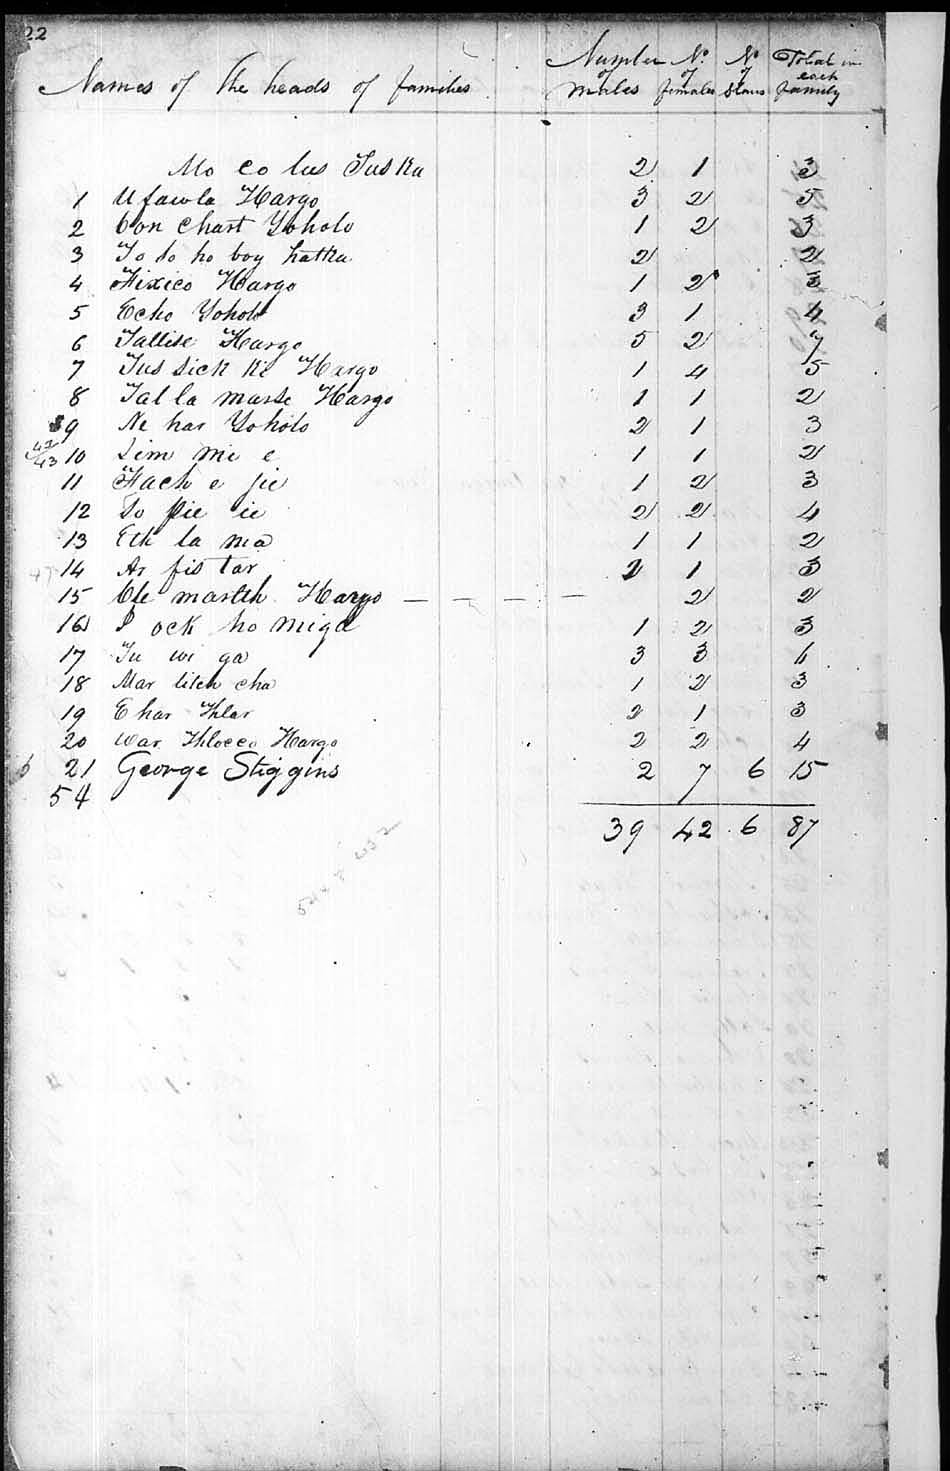 22
Names of the heads of families Number of males No. of females No. of Slaves Total in each family
Mo co lus Tuska 2 1 3
1 Ufawla Hargo 3 2 5
2 Con chart Yoholo 1 2 3
3 To so ho boy hatka 2 2
4 Fixico Hargo 1 2 3
5 Echo Yoholo 3 1 4
6 Tallise Hargo 5 2 7
7 Tus sick ki Hargo 1 4 5
8 Tal la marse Hargo 1 1 2
9 Ne har Yoholo 2 1 3
42
43 10 Sim mi e 1 1 2
11 Hach e jie 1 2 3
12 So Pie ie 2 2 4
13 Eth la ma 1 1 2
14 Ar fis tar 2 1 3
15 marlth Hargo — — — — 2 2
16 ock ho miga 1 2 3
17 Tu wi ga 3 3 6
18 Mar litch cha 1 2 3
19 E har Thlar 2 1 3
20 War Thlocco Hargo 2 2 4
21 George Stiggins 2 7 6 15
54
39 42 6 87